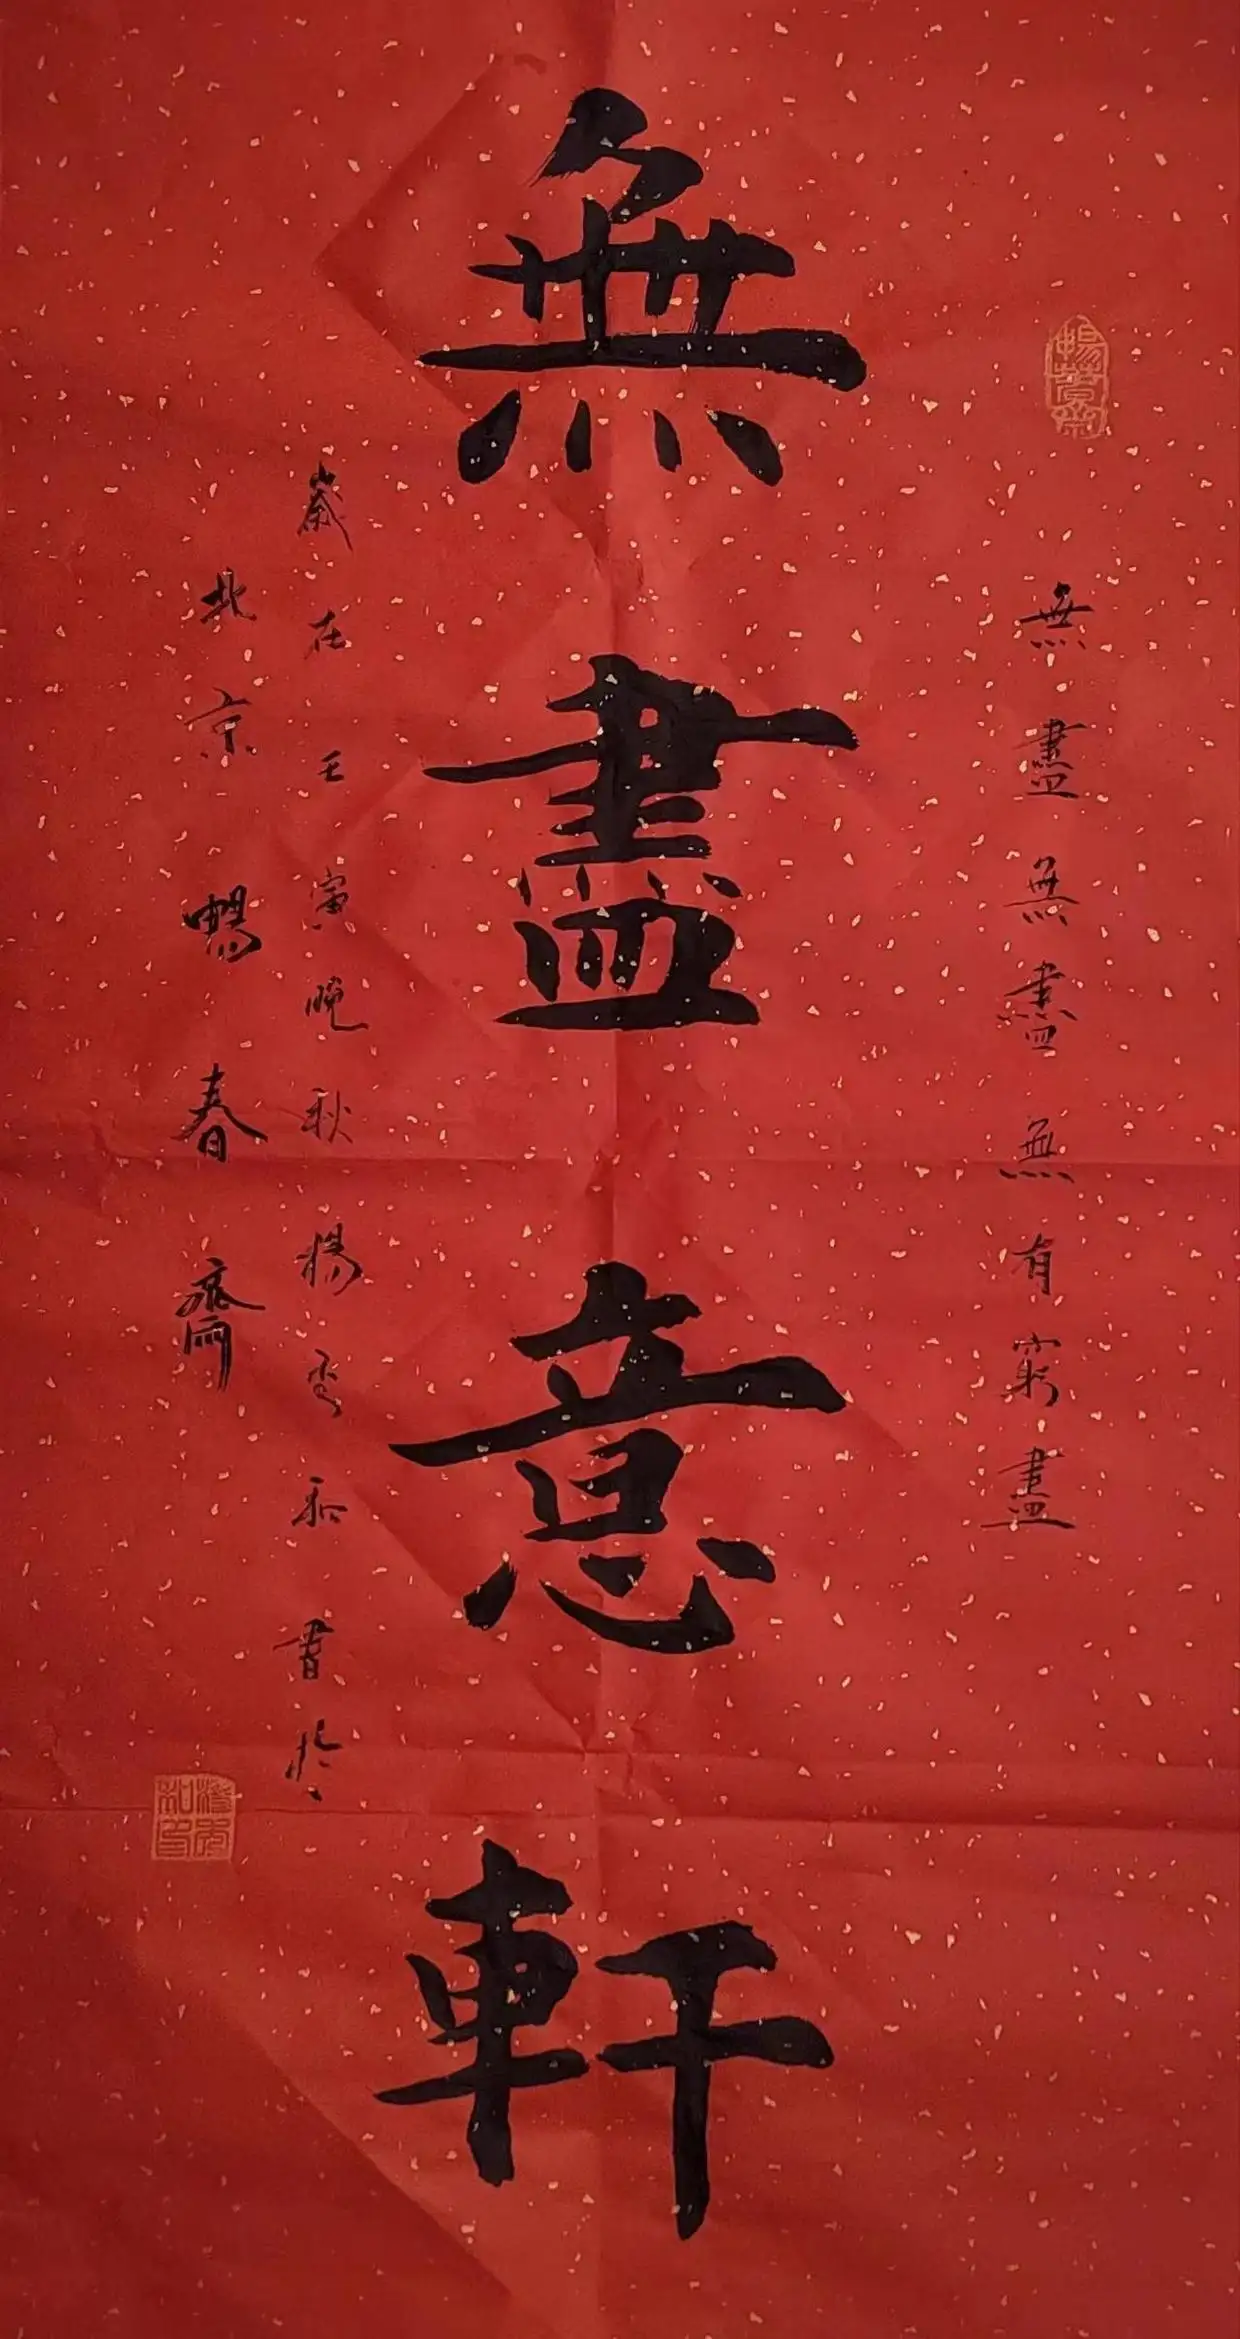 無盡無盡無有窮盡
無盡意軒
歲在壬寅晚秋楊秀和書於
北京暢春齋
暢春齋